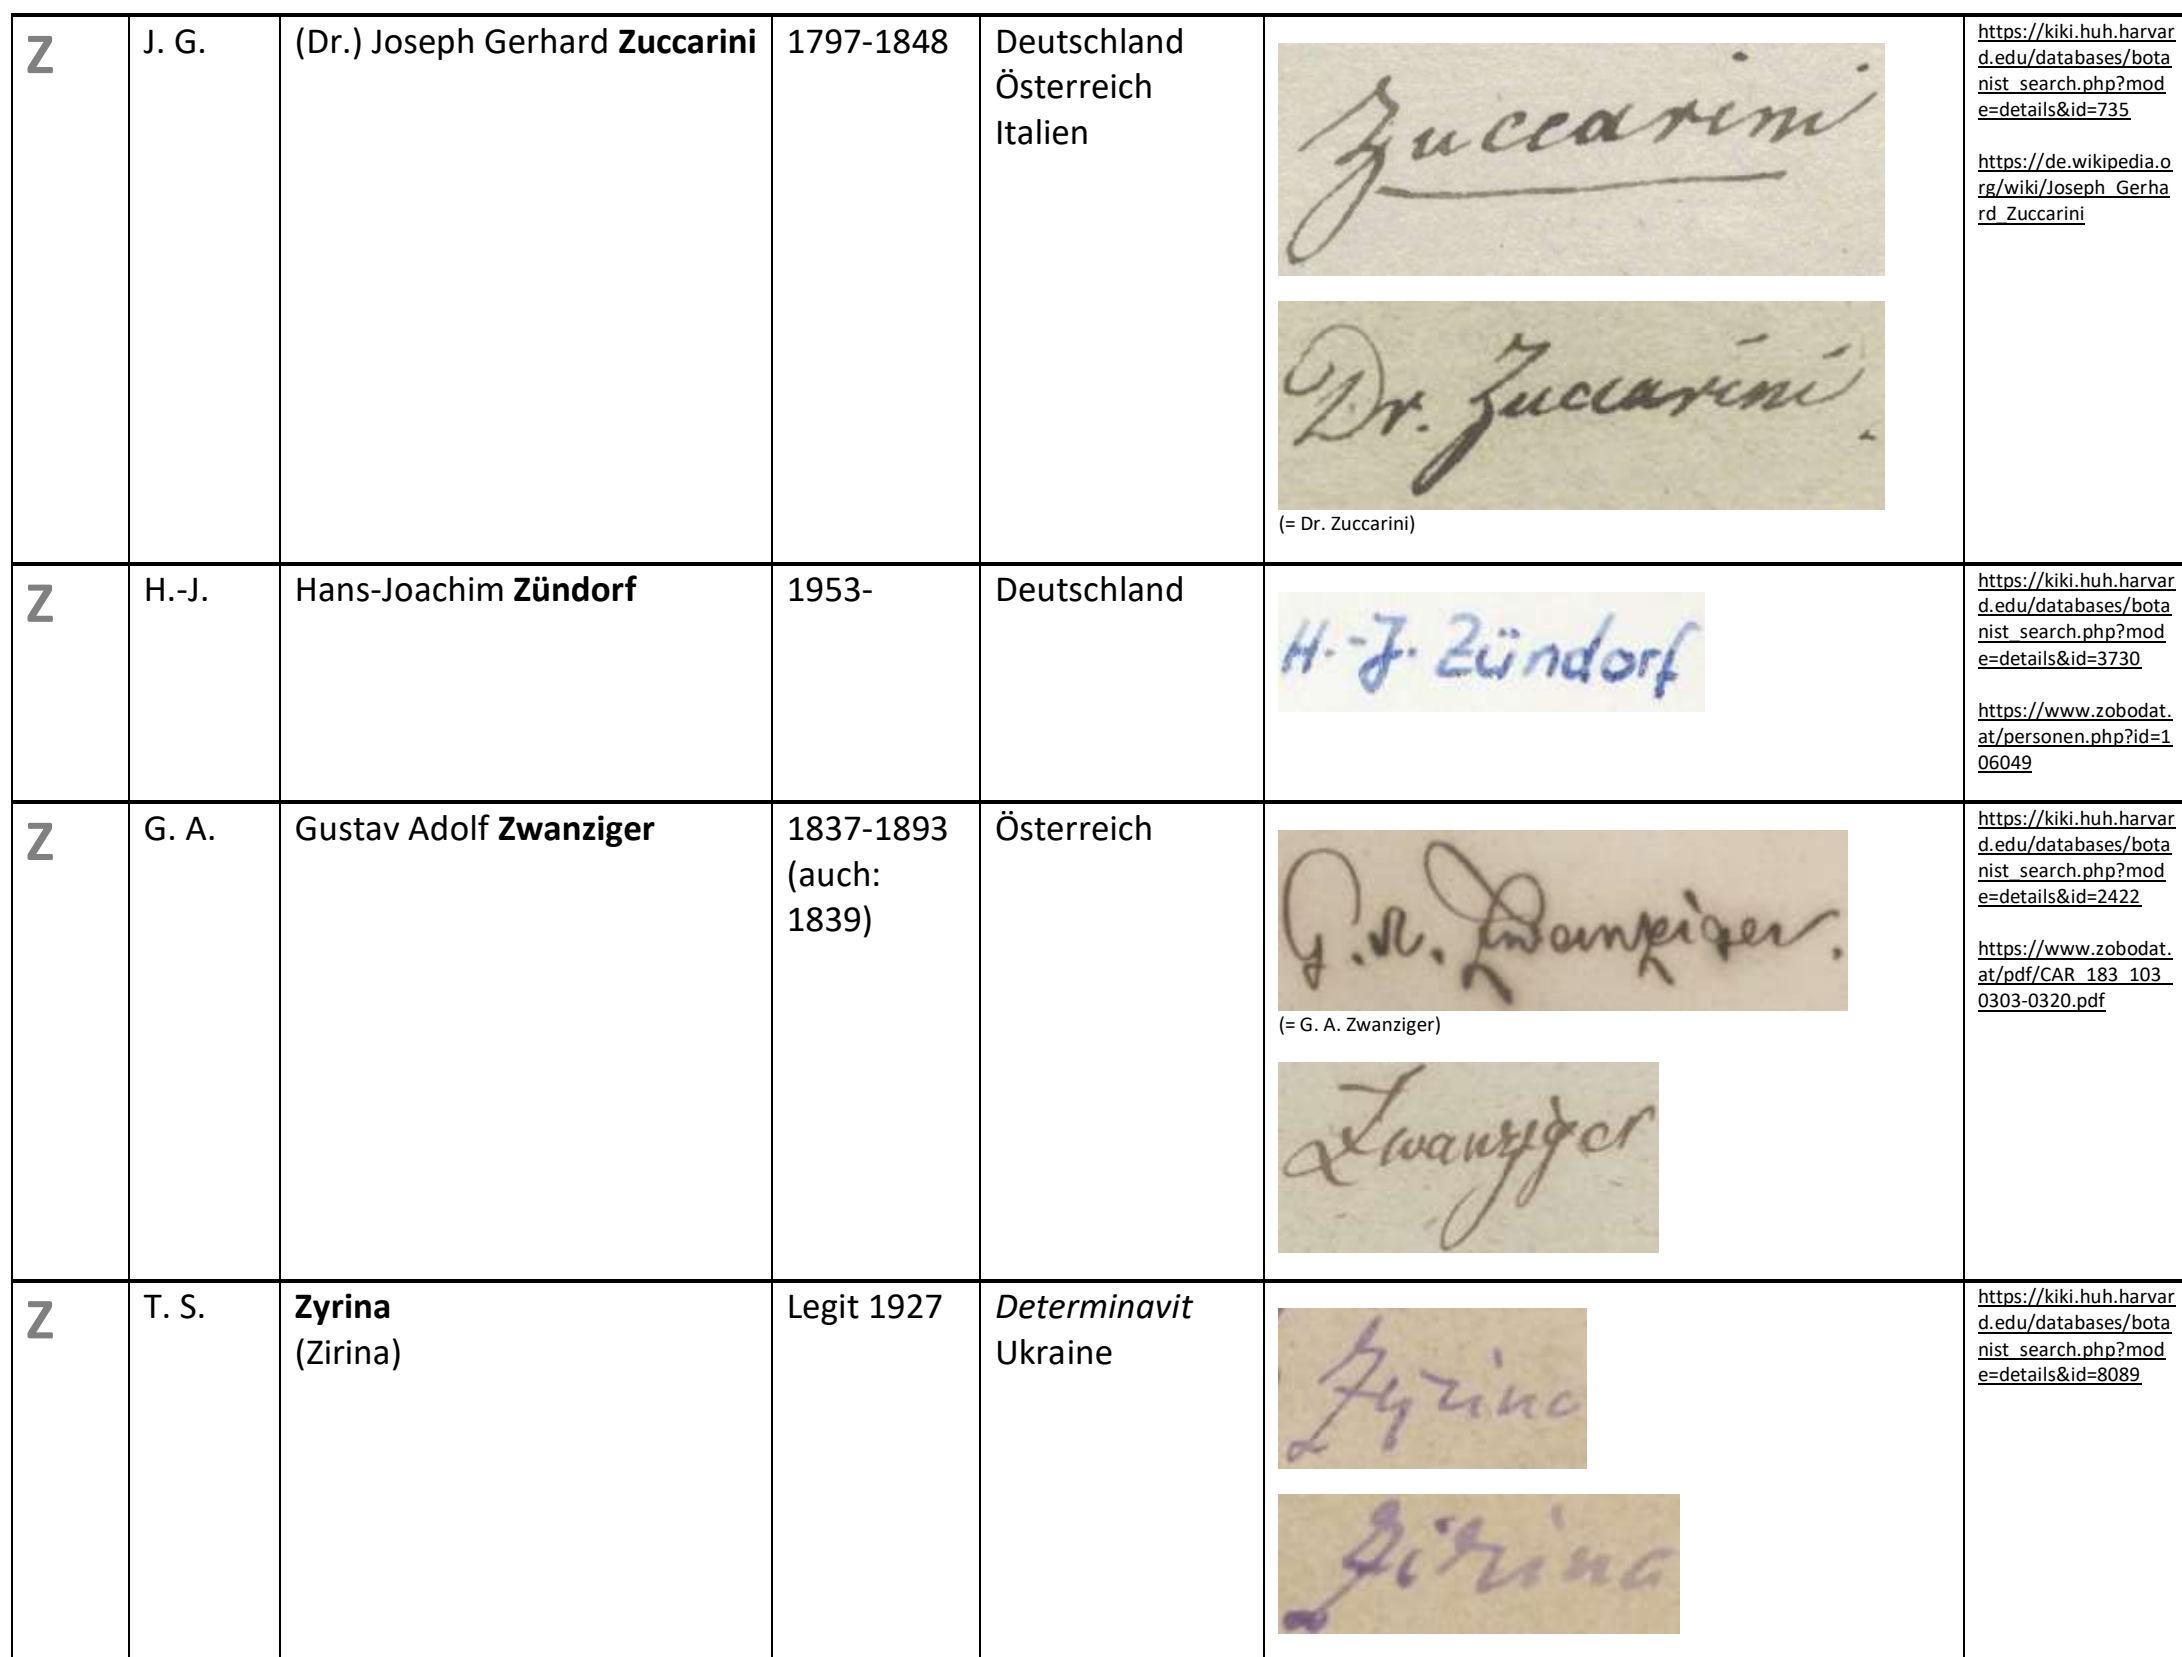 Z
J. G.
(Dr.) Joseph Gerhard Zuccarini
1797-1848
Deutschland
Österreich
Italien
Zuccarini
Dr. Zuccarini.
(= Dr. Zuccarini)
https://kiki.huh.harvar
d.edu/databases/bota
nist_search.php?mod
e=details&id=735
https://de.wikipedia.o
rg/wiki/Joseph_Gerha
rd_Zuccarini
Z
H.-J.
Hans-Joachim Zündorf
1953-
Deutschland
H.-J. Zündorf
https://kiki.huh.harvar
d.edu/databases/bota
nist_search.php?mod
e=details&id=3730
https://www.zobodat.
at/personen.php?id=1
06049
Z
G. A.
Gustav Adolf Zwanziger
1837-1893
(auch:
1839)
Österreich
G. A. Zwanziger.
(= G. A. Zwanziger)
Zwanziger
https://kiki.huh.harvar
d.edu/databases/bota
nist_search.php?mod
e=details&id=2422
https://www.zobodat.
at/pdf/CAR_183_103_
0303-0320.pdf
Z
T. S.
Zyrina
(Zirina)
Legit 1927
Determinavit
Ukraine
Zyrina
Zirina
https://kiki.huh.harvar
d.edu/databases/bota
nist_search.php?mod
e=details&id=8089